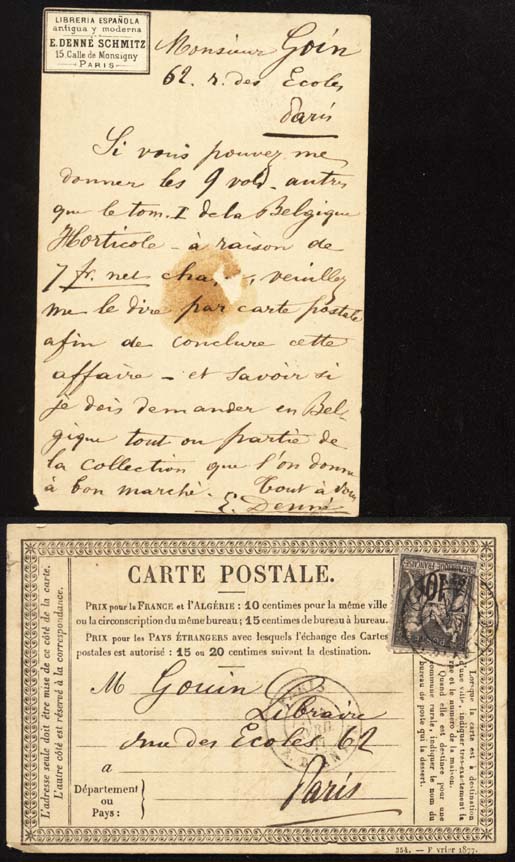 LIBRERIA ESPAÑOLA
antigua y moderna
E. DENNÉ SCHMITZ
15, Calle de Monsigny
PARIS
Monsieur Goin
62. r. des Ecoles
Paris
Si vous pouvez me
donner les 9 vols. autres
que le tom. I de la Belgique
Horticole - à raison de
7 fr. net , veuillez
me le dire par carte postale
afin de conclure cette
affaire - et savoir si
je dois demander en Bel-
gique tout ou partie de
la collection que l'on donne
à bon marché. Tout à vous
E. Denné
CARTE POSTALE.
PRIX pour la FRANCE et l'ALGÉRIE : 10 centimes pour la même ville
ou la circonscription du même bureau ; 15 centimes de bureau à bureau.
PRIX pour les PAYS ÉTRANGERS avec lesquels l'échange des Cartes
postales est autorisé : 15 ou 20 centimes suivant la destination.
M Gouin
Libraire
rue des Ecoles 62
a Paris
Département
ou
Pays :
L'adresse seule doit être mise de ce côté de la carte.
L'autre côté est réservé à la correspondance.
Lorsque la carte est à destination
d'une ville, indiquer très exactement la
rue et le numéro de la maison.
Quand elle est destinée pour une
commune rurale, indiquer le nom du
bureau de poste qui la dessert.
10
PARIS
354. - F vrier 1877.